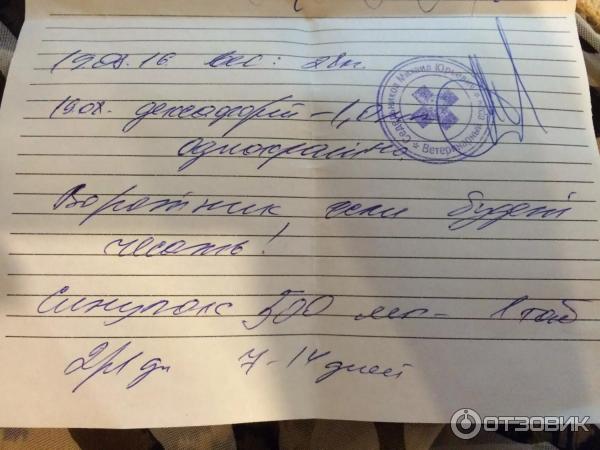 19.08.16 вес: 28кг.
19.08. дексафорт - 1,0 мл
однократно
Воротник, если будет
чесать!
Синулокс 500 мг - 1 таб
2р/дн 7-14 дней
Михаил Юрьевич
Ветеринарный врач
ОТЗОВИК